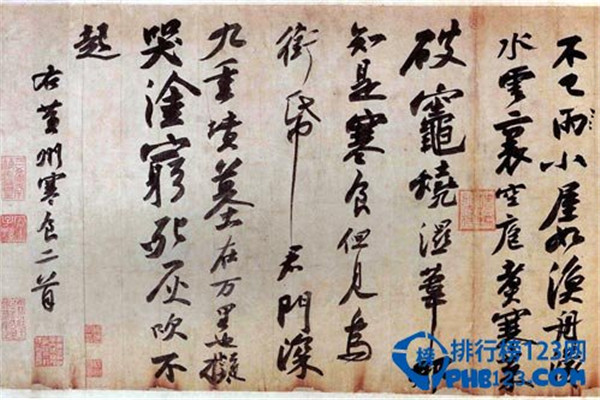 不已雨小屋如漁舟濛
水雲裏空庖煮寒菜
破竈燒濕葦那
知是寒食但見烏
銜帋君門深
九重墳墓在万里也擬
哭塗窮死灰吹不
起
右黃州寒食二首
排行榜123网
PHB123.com